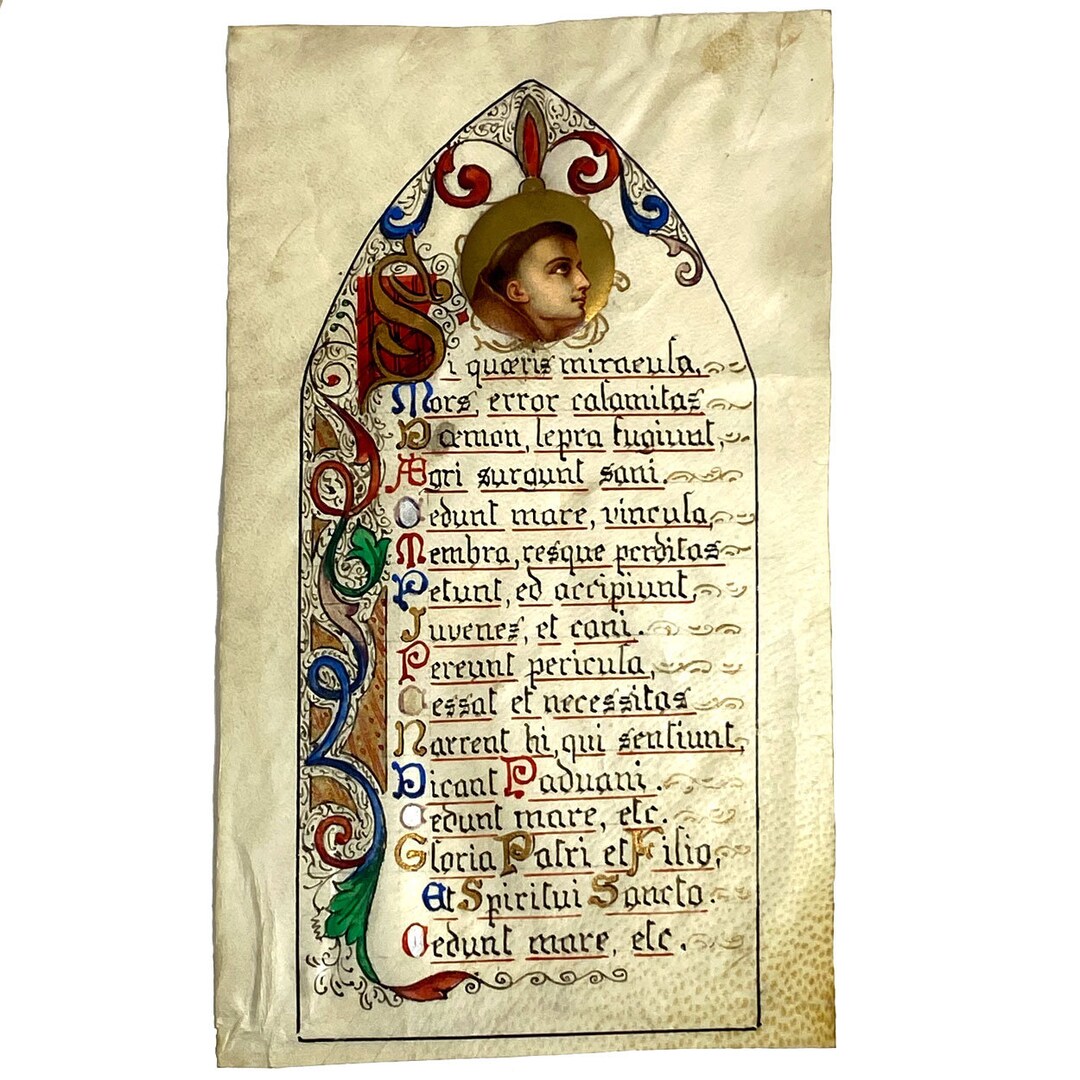 Si quæris miracula,
Mors, error calamitas
Dæmon, lepra fugiunt,
Ægri surgunt sani.
Cedunt mare, vincula,
Membra, resque perditas
Petunt, ed accipiunt,
Juvenes, et cani.
Pereunt pericula,
Cessat et necessitas
Narrent hi, qui sentiunt,
Dicant Paduani.
Cedunt mare, etc.
Gloria Patri et Filio,
Et Spiritui Sancto.
Cedunt mare, etc.